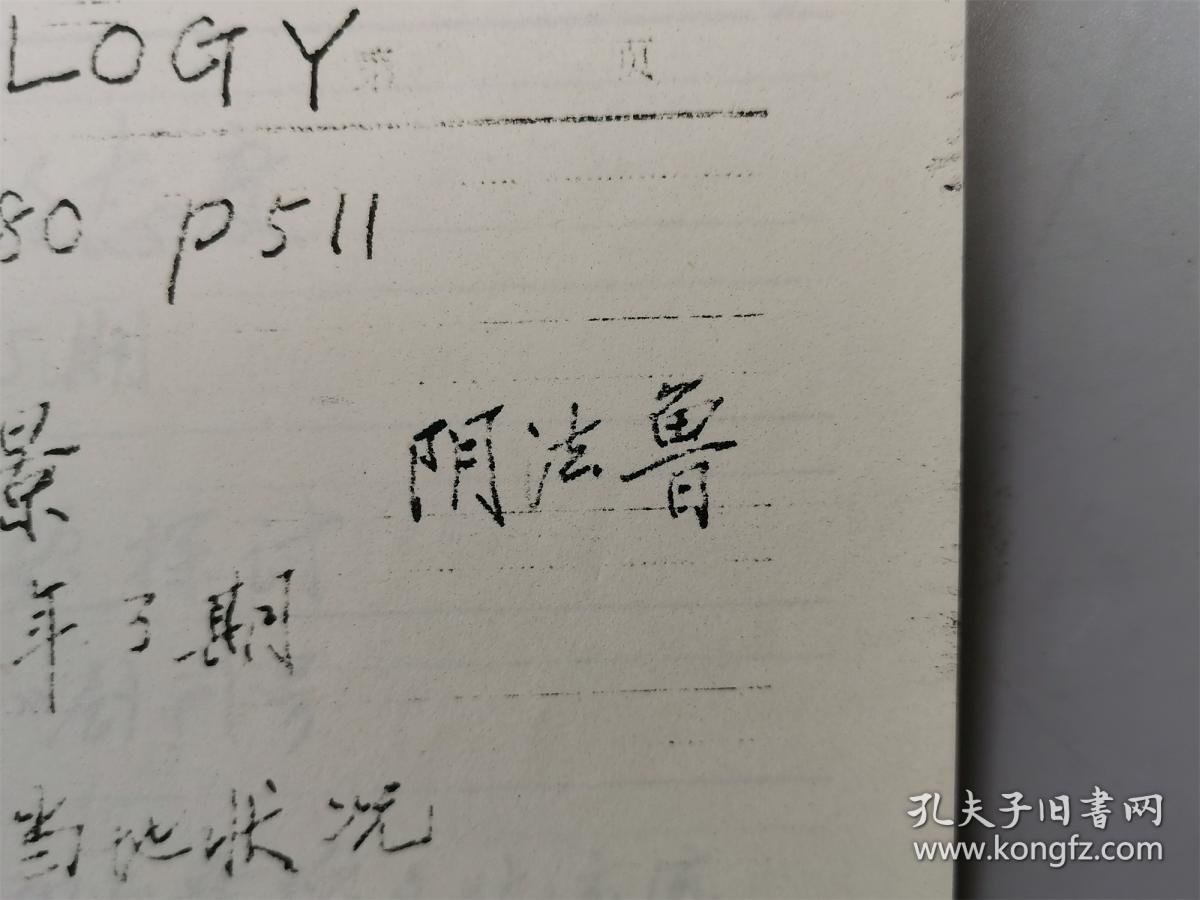 LOGY 第 页
80 p511
景 阴法鲁
年3期
当地状况
孔夫子旧書网
www.kongfz.com